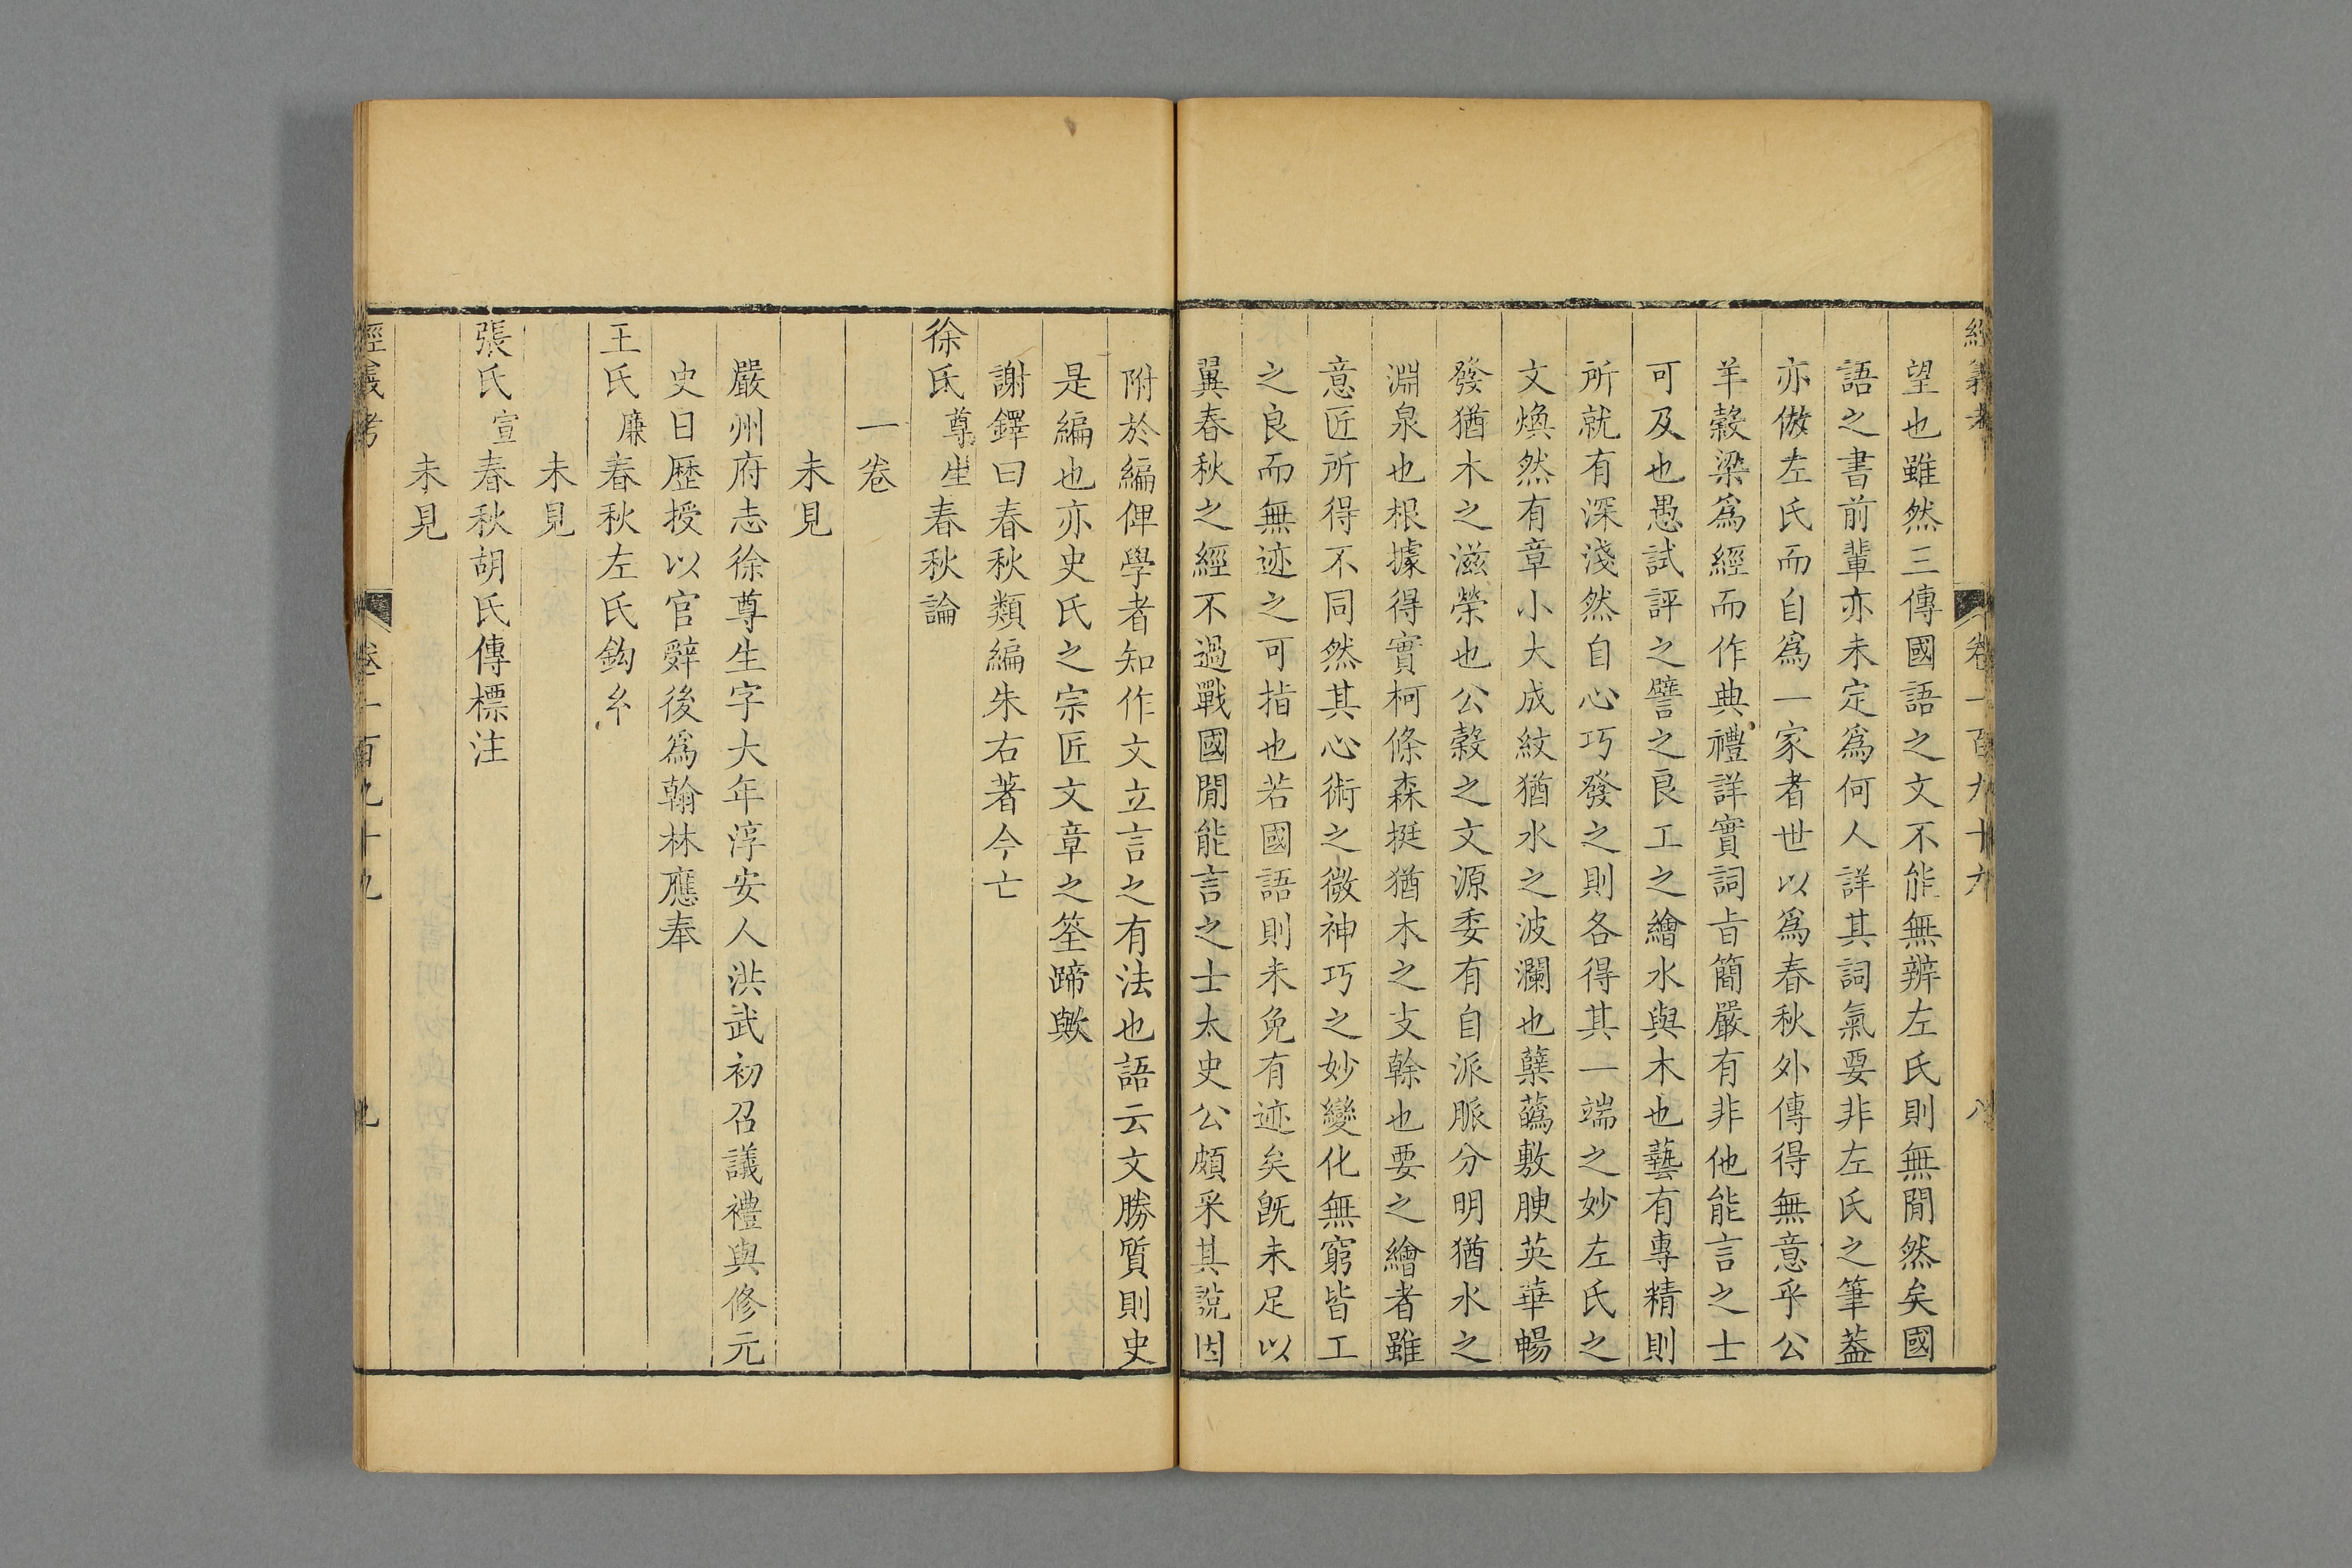 經義考 卷一百九十九 八
望也雖然三傳國語之文不能無辨左氏則無閒然矣國
語之書前輩亦未定爲何人詳其詞氣要非左氏之筆葢
亦倣左氏而自爲一家者世以爲春秋外傳得無意乎公
羊穀梁爲經而作典禮詳實詞旨簡嚴有非他能言之士
可及也愚試評之譬之良工之繪水與木也藝有專精則
所就有深淺然自心巧發之則各得其一端之妙左氏之
文煥然有章小大成紋猶水之波瀾也蘖蘤敷腴英華暢
發猶木之滋榮也公穀之文源委有自派脈分明猶水之
淵泉也根據得實柯條森挺猶木之支榦也要之繪者雖
意匠所得不同然其心術之微神巧之妙變化無窮皆工
之良而無迹之可指也若國語則未免有迹矣旣未足以
翼春秋之經不過戰國閒能言之士太史公頗采其說因
附於編俾學者知作文立言之有法也語云文勝質則史
是編也亦史氏之宗匠文章之筌蹄歟
謝鐸曰春秋類編朱右著今亡
徐氏尊生春秋論
一卷
未見
嚴州府志徐尊生字大年淳安人洪武初召議禮與修元
史日歷授以官辭後爲翰林應奉
王氏廉春秋左氏鈎糸
未見
張氏宣春秋胡氏傳標注
未見
經義考 卷一百九十九 九